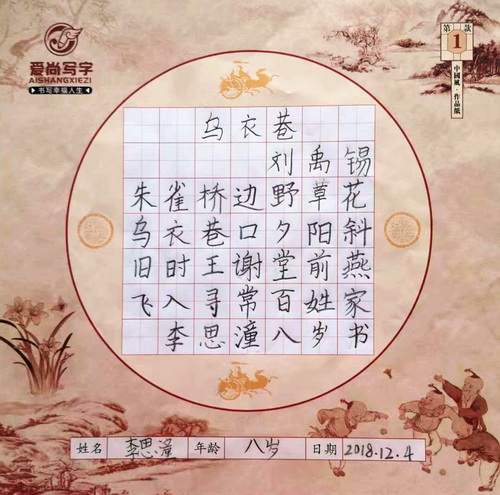 爱尚写字
AISHANGXIEZI
书写幸福人生
第1款
中國風·作品紙
乌衣巷
刘禹锡
朱雀桥边野草花
乌衣巷口夕阳斜
旧时王谢堂前燕
飞入寻常百姓家
李思潼八岁书
姓名 李思潼 年龄 八岁 日期 2018.12.4